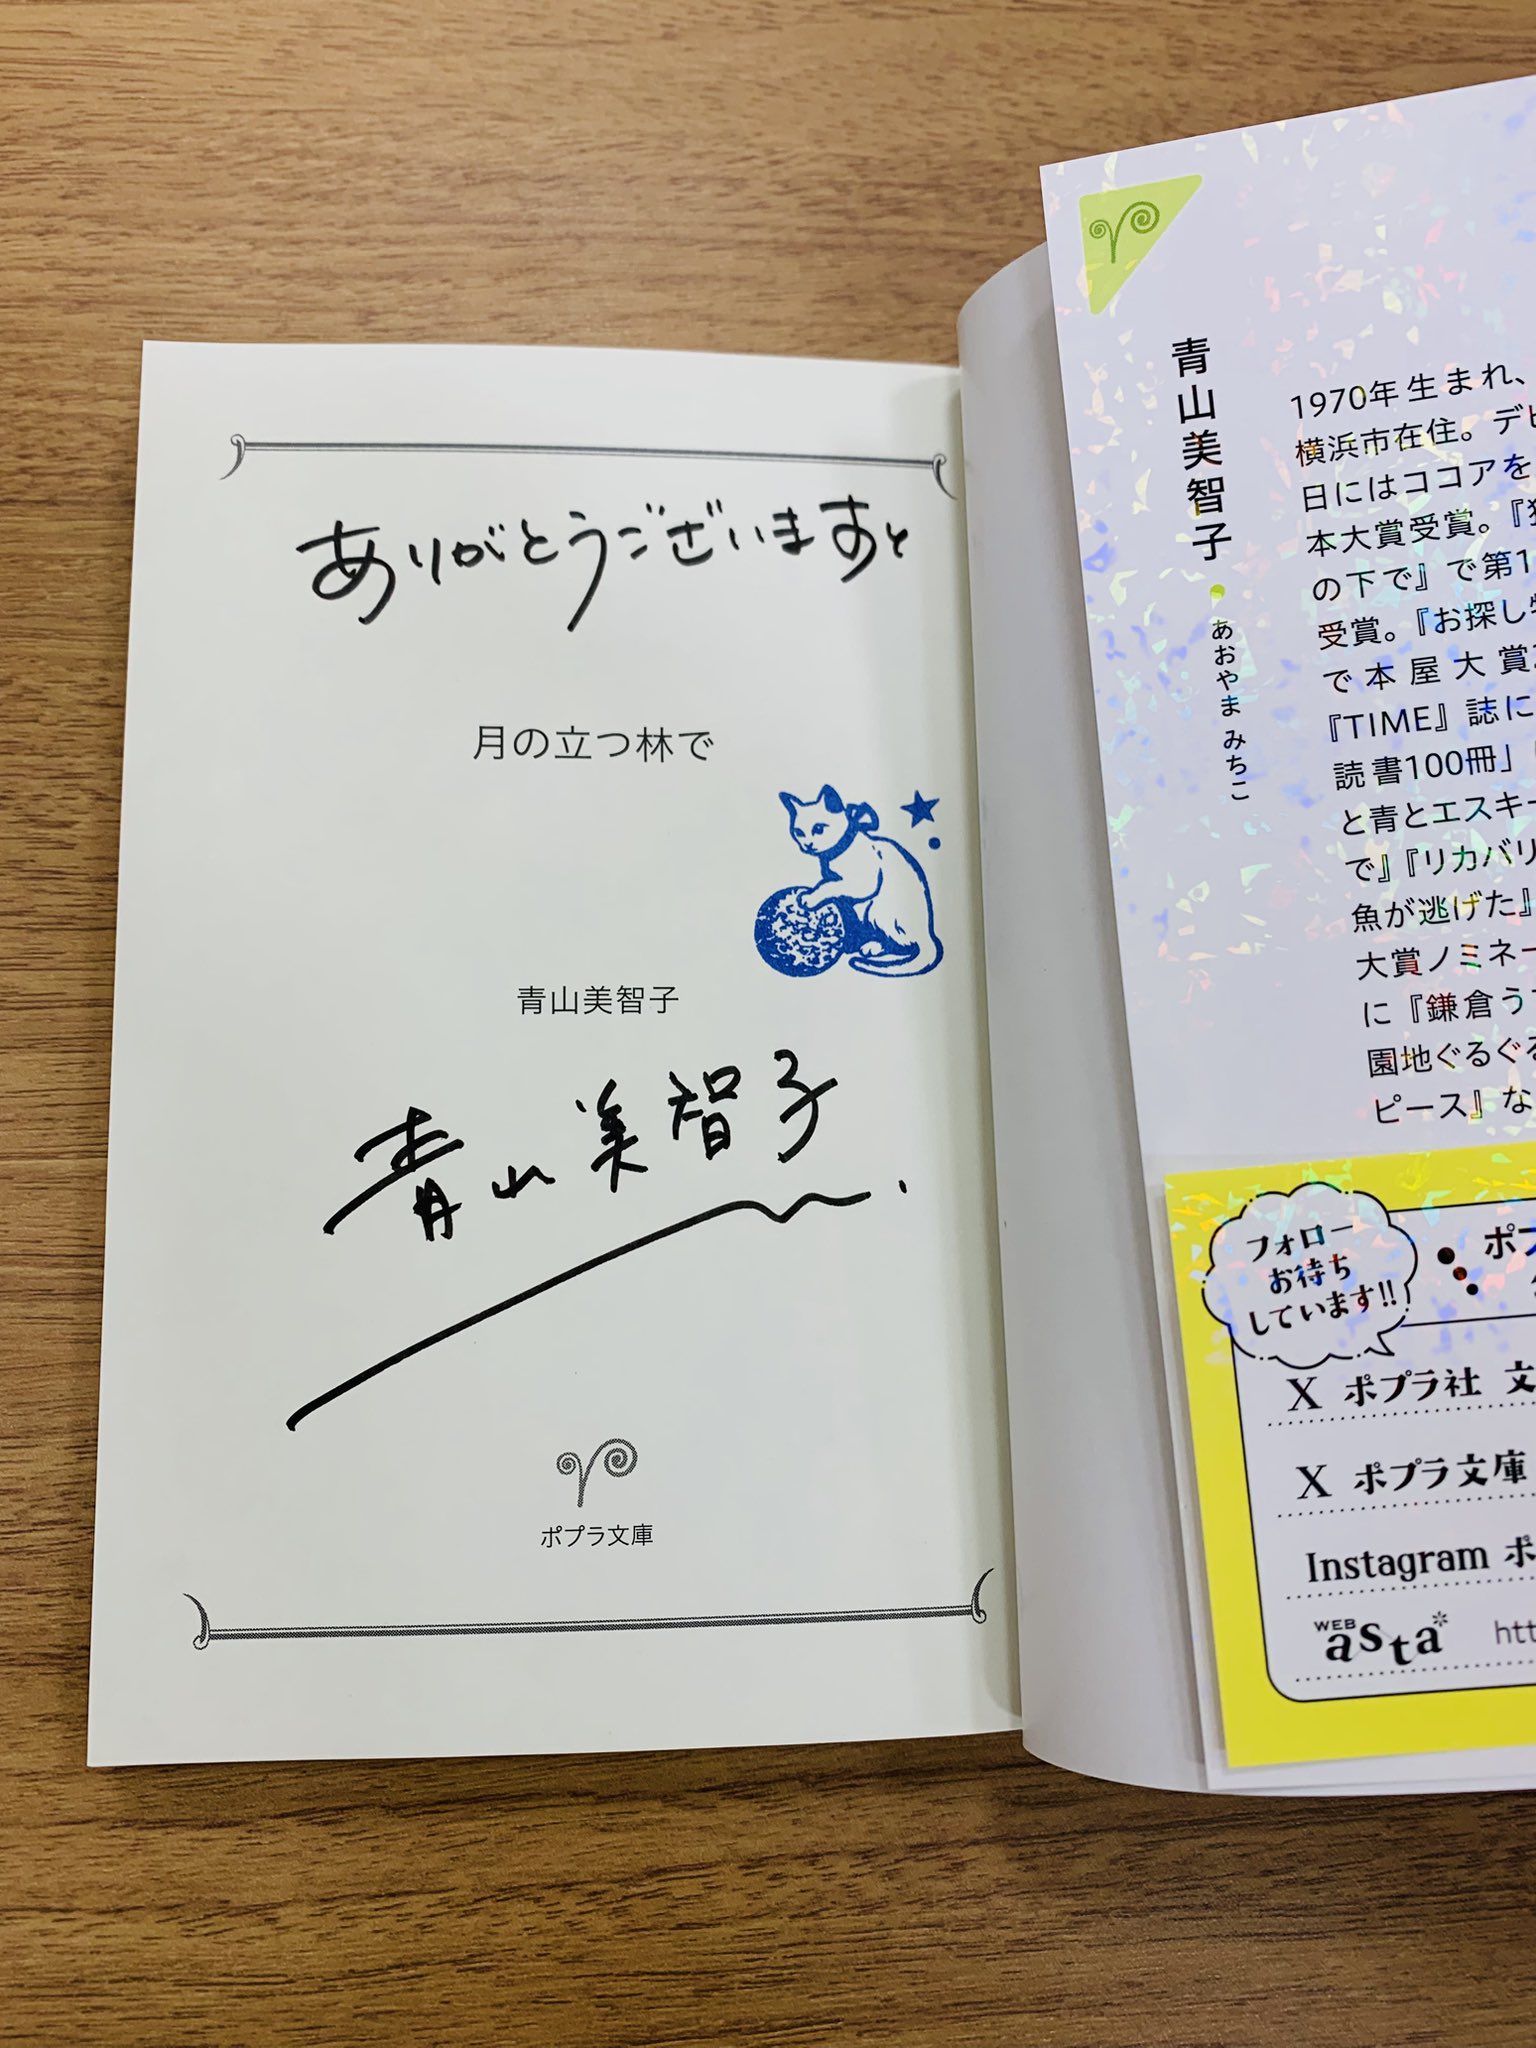 ありがとうございます
月の立つ林で
青山美智子
青山美智子
ポプラ文庫
青山美智子・あおやま みちこ
1970年生まれ、
横浜市在住。デビ
日にはココアを
本大賞受賞。『
の下で』で第1
受賞。『お探し物
で本屋大賞
『TIME』誌に
読書100冊」
と青とエスキー
で』『リカバリ
魚が逃げた』
大賞ノミネー
に『鎌倉う
園地ぐるぐる
ピース』な
フォロー
お待ち
しています!!
ポプ
X ポプラ社 文
X ポプラ文庫
Instagram ポ
WEB asta*
htt